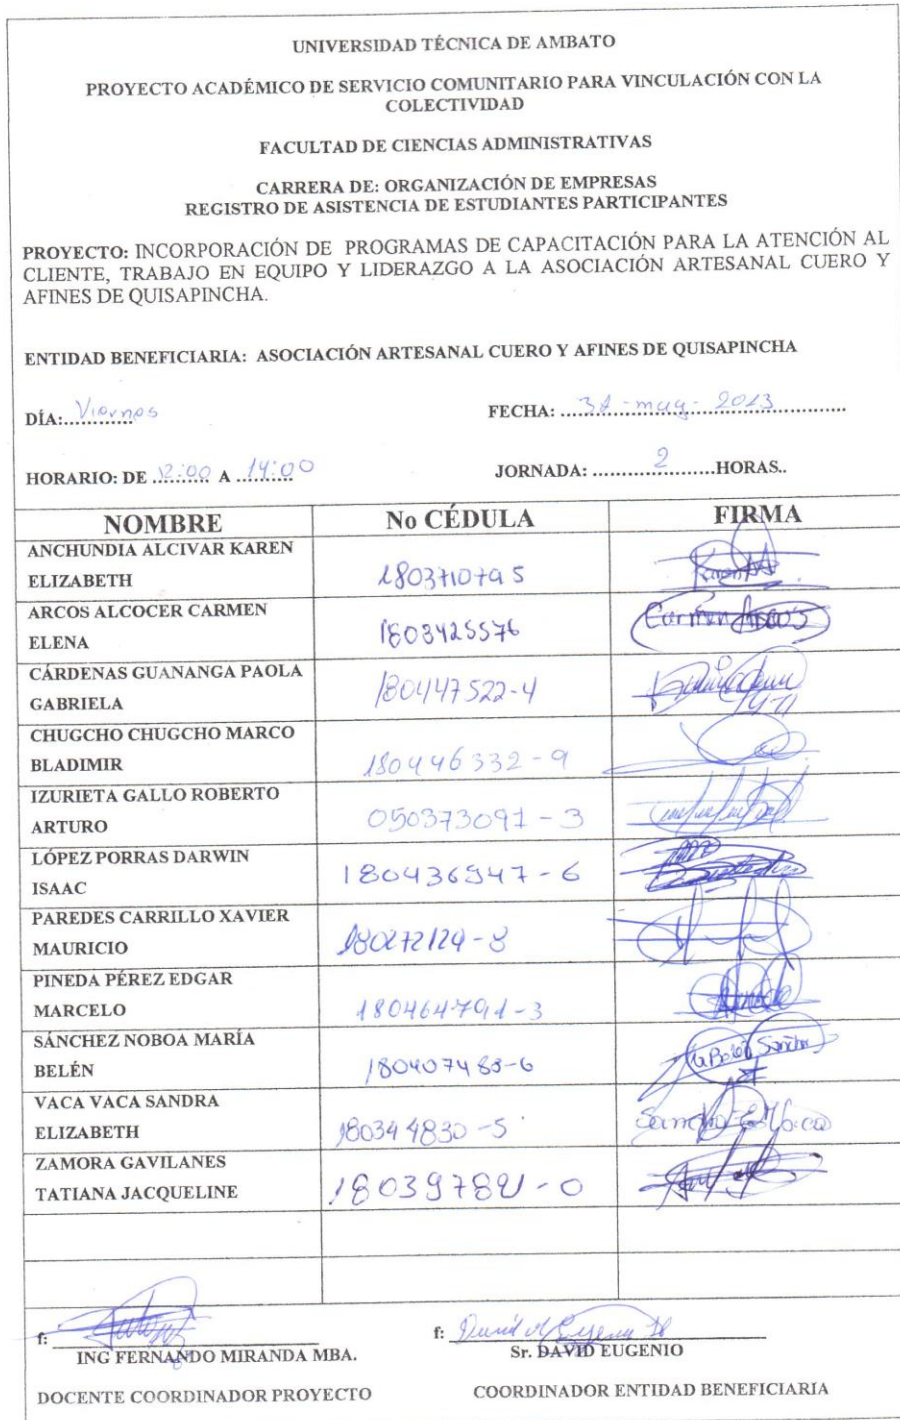 UNIVERSIDAD TÉCNICA DE AMBATO
PROYECTO ACADÉMICO DE SERVICIO COMUNITARIO PARA VINCULACIÓN CON LA
COLECTIVIDAD
FACULTAD DE CIENCIAS ADMINISTRATIVAS
CARRERA DE: ORGANIZACIÓN DE EMPRESAS
REGISTRO DE ASISTENCIA DE ESTUDIANTES PARTICIPANTES
PROYECTO: INCORPORACIÓN DE PROGRAMAS DE CAPACITACIÓN PARA LA ATENCIÓN AL
CLIENTE, TRABAJO EN EQUIPO Y LIDERAZGO A LA ASOCIACIÓN ARTESANAL CUERO Y
AFINES DE QUISAPINCHA.
ENTIDAD BENEFICIARIA: ASOCIACIÓN ARTESANAL CUERO Y AFINES DE QUISAPINCHA
DÍA: Viernes FECHA: 31-may-2013
HORARIO: DE 12:00 A 14:00 JORNADA: 2 HORAS..
NOMBRE No CÉDULA FIRMA
ANCHUNDIA ALCIVAR KAREN
ELIZABETH
ARCOS ALCOCER CARMEN
ELENA 1803425576 Carmen Arcos
CÁRDENAS GUANANGA PAOLA
GABRIELA 180447522-4
CHUGCHO CHUGCHO MARCO
BLADIMIR 180446332-9
IZURIETA GALLO ROBERTO
ARTURO 050373091-3
LÓPEZ PORRAS DARWIN
ISAAC 180436947-6
PAREDES CARRILLO XAVIER
MAURICIO
PINEDA PÉREZ EDGAR
MARCELO 180464791-3
SÁNCHEZ NOBOA MARÍA
BELÉN 180407483-6
VACA VACA SANDRA
ELIZABETH 180344830-5
ZAMORA GAVILANES
TATIANA JACQUELINE
f: f:
ING FERNANDO MIRANDA MBA. Sr. DAVID EUGENIO
DOCENTE COORDINADOR PROYECTO COORDINADOR ENTIDAD BENEFICIARIA